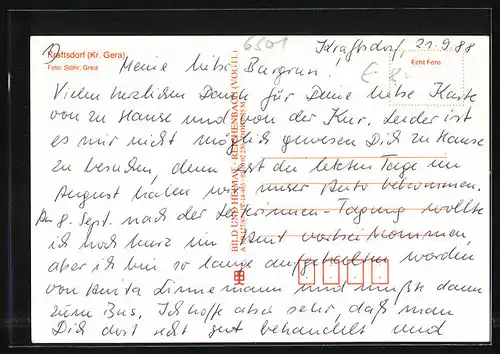 Kraftsdorf (Kr. Gera)
Foto: Stöhr, Greiz
1)
6501
Kraftsdorf, 21.9.88
Echt Foto
Meine liebe
Vielen herzlichen Dank für Deine liebe Karte
von zu Hause und von der Kur. Leider ist
es mir nicht möglich gewesen Dich zu Hause
zu besuchen, denn erst die letzten Tage im
August haben wir unser Auto bekommen.
Am 8. Sept. nach der -Tagung wollte
ich noch kurz im vorbei kommen,
aber ich bin so lange aufgehalten worden
von Anita Linnemann und mußte dann
zum Bus. Ich hoffe aber sehr, daß man
Dich dort recht gut behandelt und
BILD UND HEIMAT REICHENBACH (VOGTL)